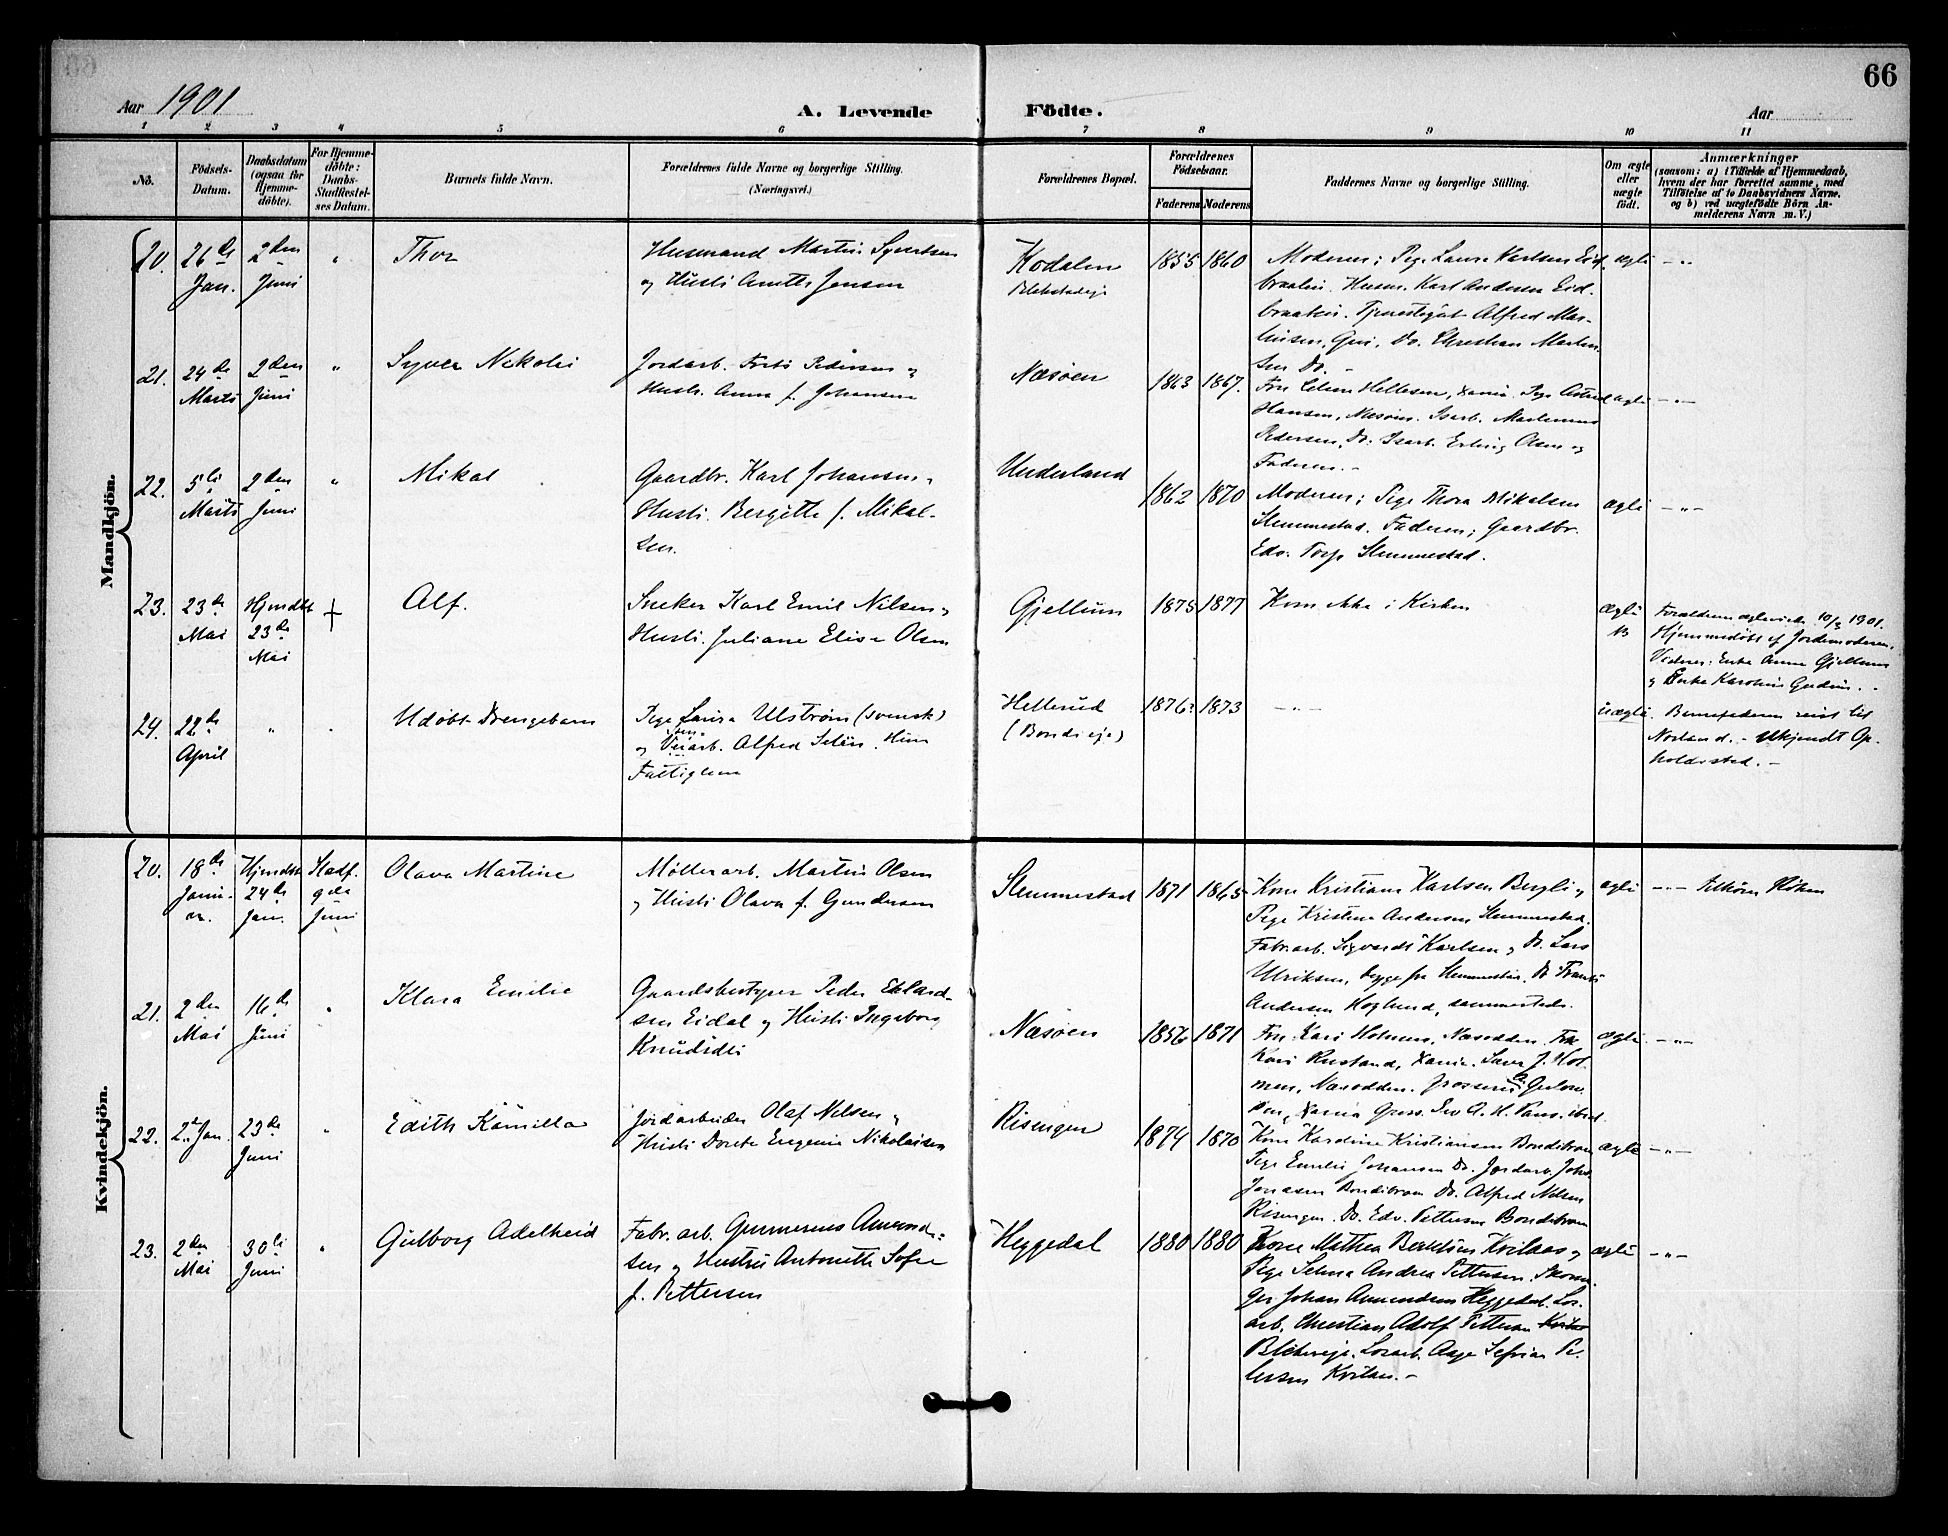 66
Aar 1901
A. Levende
Födte.
Aar
1 2 3 4 5 6 7 8 9 10 11
No.
Födsels-
Datum.
Daabsdatum
(ogsaa for
Hjemme-
döbte).
For Hjemme-
döbte:
Daabs-
Stadfæstel-
ses Datum.
Barnets fulde Navn.
Forældrenes fulde Navne og borgerlige Stilling.
(Næringsvei.)
Forældrenes Bopæl.
Forældrenes
Födselsaar.
Faderens Moderens
Faddernes Navne og borgerlige Stilling.
Om ægte
eller
uægte
födt.
Anmærkninger
(saasom: a) i Tilfælde af Hjemmedaab,
hvem der har forrettet samme, med
Tilföielse af to Daabsvidners Navne,
og b) ved uægtefödte Börn An-
melderens Navn m. V.)
Mandkjön.
20.
26de
Jan.
2den
Juni
"
Thor
Husmand Martin Syvertsen
og Hustr. Anette Jensen
Kodalen
1855 1860
Moderen; Pige Laura Karlsen Eid-
braaten. Husm. Karl Andersen Eid-
braaten. Tjenestegut Alfred Mar-
tinsen, Do. Christian Martin-
sen Do.
ægte
21.
24de
Marts
2den
Juni
"
Syver Nikolai
Jordarb. Pedersen og
Hustr. Anna f. Johansen
Næsöen
1863 1867.
Hellesen, Pige Astrid
Hansen, Næsöen. Isarb. Martinius
Pedersen, Do. Isarb. Erling Olsen og
Faderen.
ægte
22.
5te
Marts
2den
Juni
"
Mikal
Gaardbr. Karl Johansen og
Hustr. Bergitte f. Mikal-
sen.
Underland
1862 1870
Moderen; Pige Thora Mikalsen
Slemmestad. Faderen; Gaardbr.
Edv. Torp Slemmestad.
ægte
23.
23de
Mai
Hjmdbt
23de
Mai
Alf.
Sneker Karl Emil Nilsen og
Hustr. Juliane Elise Olsen
Gjellum
1875 1877
Kom ikke i Kirken
ægte
NB
Forældrene ægteviede 10/3 1901.
Hjemmedöbt af Jordemoderen.
Vidner: Enke Anne Gjellum
og Enke Karoline
24.
22de
April
"
Udöbt Drengebarn
Pige Laura Ulström (svensk)
og Veiarb. Alfred
Fattiglem
Hellerud
(Bondieje)
1876? 1873
uægte.
Barnefaderen reist til
Norland. - Ukjendt Op-
holdssted. -
Kvindekjön.
20.
18de
Janu-
ar.
Hjmdbt
24de
Jan.
Stadf.
9de
Juni
Olava Martine
Möllerarb. Martin Olsen
og Hustr. Olava f. Gundersen
Slemmestad
1871 1865
Kone Kristiane Karlsen Bergli og
Pige Kristine Andersen Slemmestad.
Fabr.arb. Sigvardt Karlsen og Do. Lars
Ulriksen, begge fra Slemmestad. Do. Frants
Andersen Hoglund, sammesteds.
ægte
21.
2den
Mai
16de
Juni
"
Klara Emilie
Gaardsbestyrer Peder
sen Eidal og Hustr. Ingeborg
Knudsdtr
Næsöen
1856 1871
Fru Kari Holmen, Næsodden. Frk.
Rustand, Lars J. Hol-
men, Næsodden. Grosserer
ægte
22.
2. Jan.
23de
Juni
"
Edith Kamilla
Jordarbeider Olaf Nilsen og
Hustr. Dorte Eugenie Nikolaisen
Risengen
1874 1870
Kone Karoline Kristiansen Bondibraaten
Pige Emilie Johansen Do. Jordarb. Johs.
Jonasen Bondibraaten Do. Alfred Nilsen
Risengen. Do. Edv. Pettersen Bondibraaten
ægte
23.
2den
Mai
30te
Juni
"
Gulborg Adelheid
Fabr. arb. Gunnerius Amund-
sen og Hustru Antonette Sofie
f. Pettersen
Heggedal
1880 1880
Kone Mathea Kvilaas og
Pige Selma Andrea Pettersen. Skoma-
ger Johan Amundsen Heggedal. Lös-
arb. Christian Adolf Pettersen
Lösarb. Aage Pe-
tersen Kvilaas. -
ægte